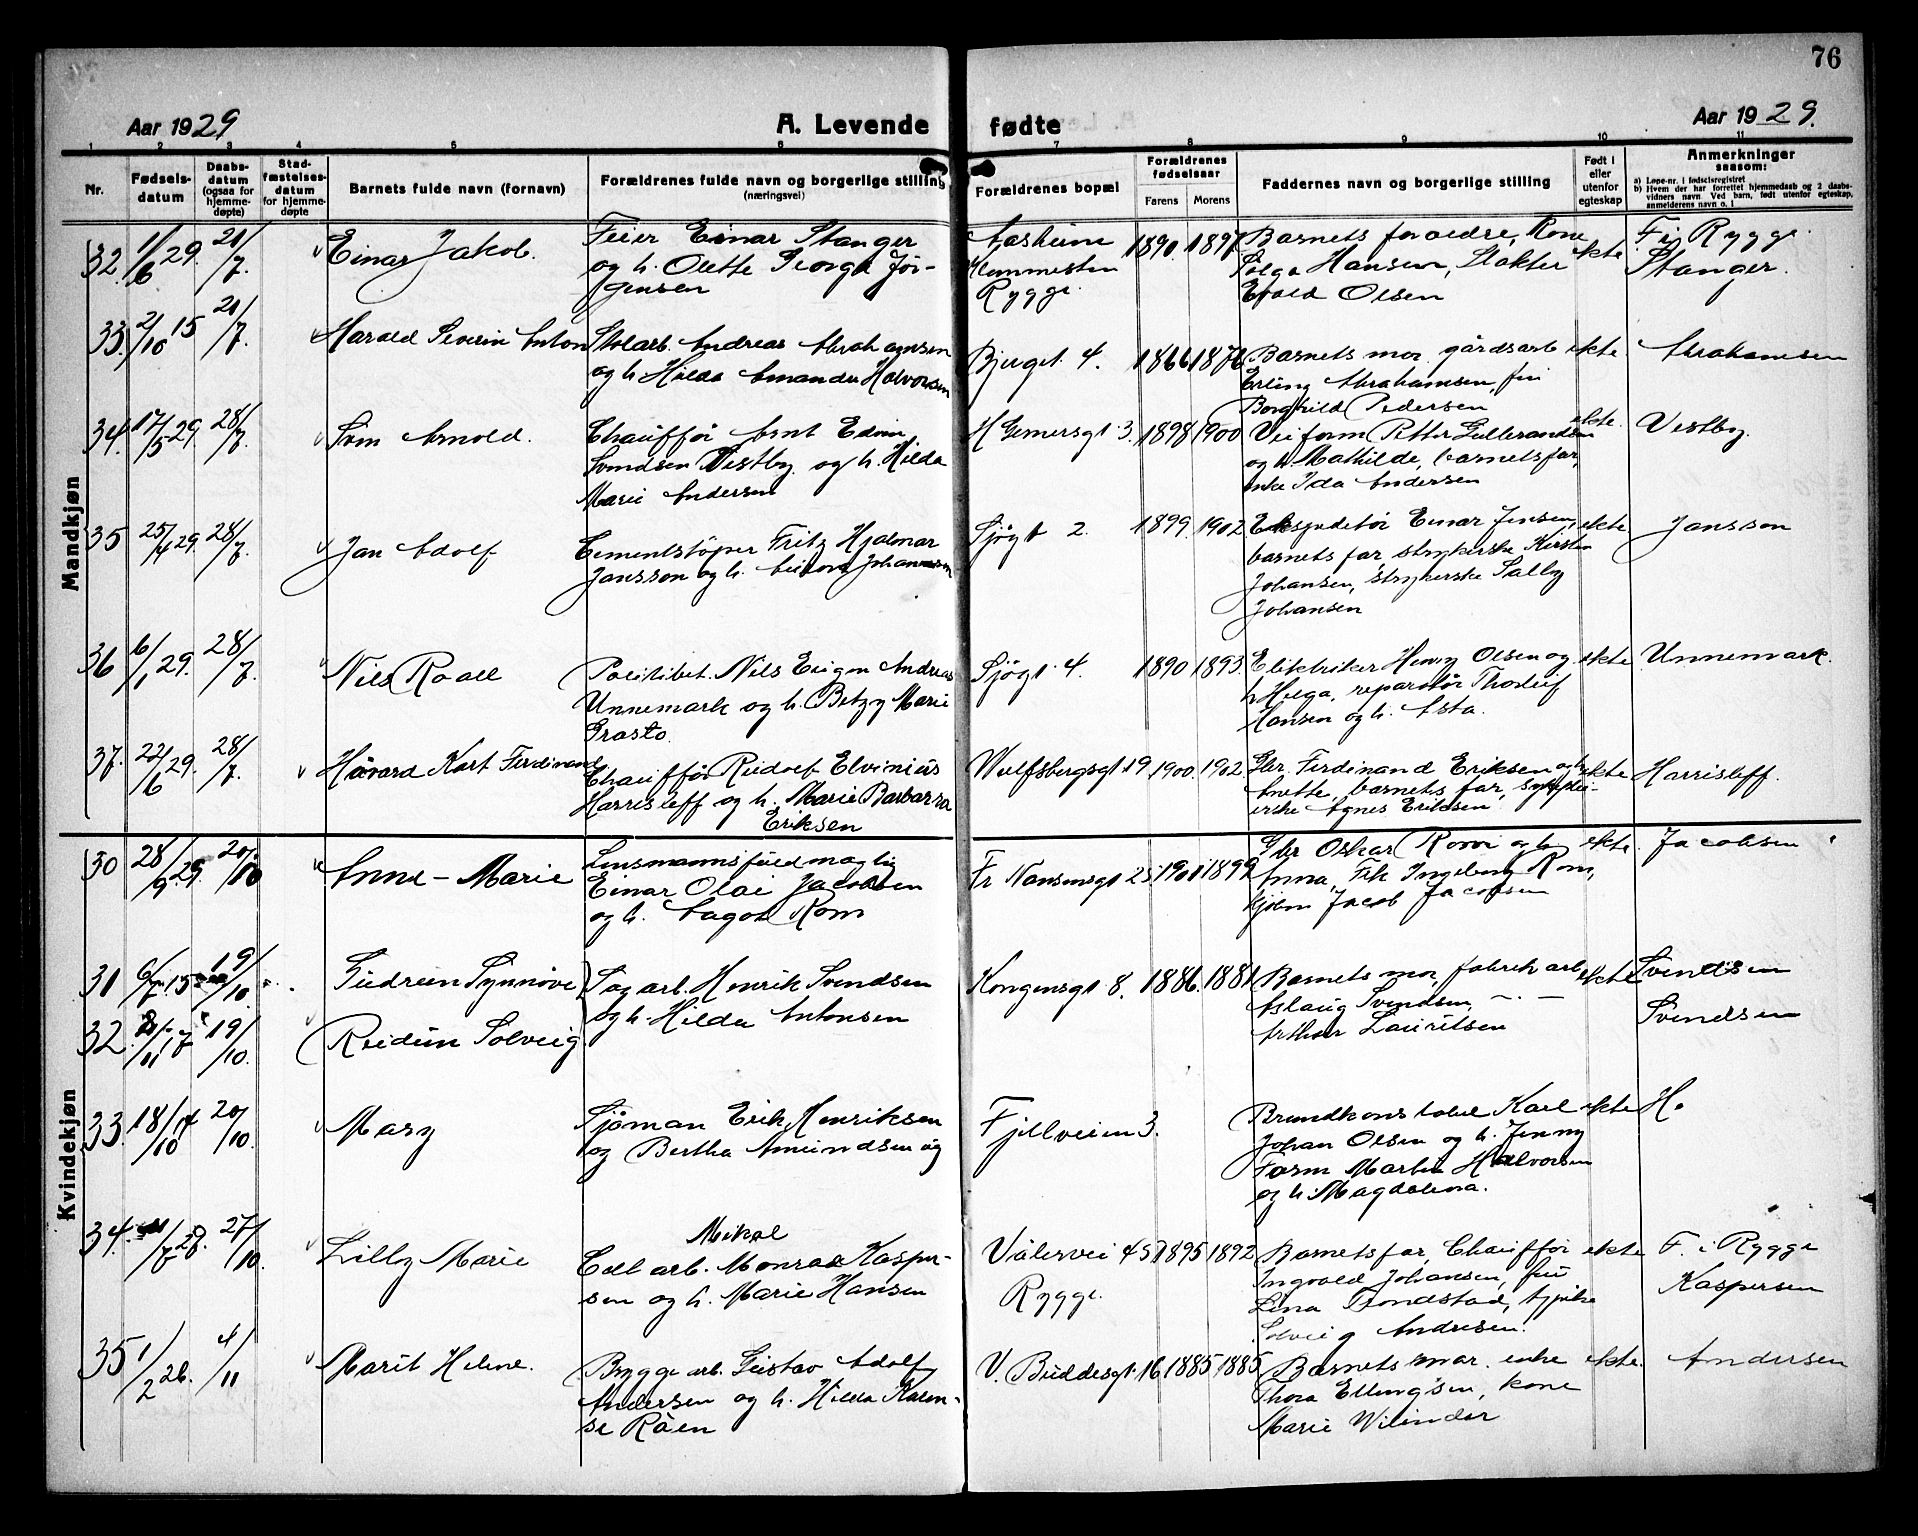 76
Aar 1929
A. Levende
fødte
Aar 1929.
1 2 3 4 5 6 7 8 9 10 11
Nr.
Fødselsdatum
Daabsdatum (ogsaa for hjemmedøpte)
Stadfæstelsesdatum for hjemmedøpte
Barnets fulde navn (fornavn)
Forældrenes fulde navn og borgerlige stilling
(næringsvei)
Forældrenes bopæl
Forældrenes fødselsaar
Farens Morens
Faddernes navn og borgerlige stilling
Født i eller utenfor egteskap
Anmerkninger saasom:
a) Løpe-nr. i fødselsregistret
b) Hvem der har forrettet hjemmedaab og 2 daabsvidners navn. Ved barn, født utenfor egteskap, anmelderens navn o. l
Mandkjøn
32. 1/6 29. 21/7. Einar Jakob.
Feier Einar Stanger
og h. Olette Georga Jør-
gensen
Rygge.
1890. 1897
Barnets foraldre, Kone
Solga Hansen, Slakter
Evald Olsen
ekte
F. i Rygge.
Stanger.
33. 2/10 15 21/7. Harald Severin Anton
Stolarb. Andreas Abrahamsen
og h. Hilda Amanda Halvorsen
Bjuget 4. 1866 1876
Barnets mor, gårdsarb
Erling Abrahamsen, fru
Borghild Pedersen
ekte. Abrahamsen
34. 17/5 29. 28/7. Sven Arnold.
Chauffør Arnt Edvin
Svendsen Vestby og h. Hilda
Marie Andersen
H Gernersgt 3. 1898 1900
Veiform Petter Gulbrandsen
og h Mathilde, barnets far,
enke Ida Andersen
ekte. Vestby.
35 25/4 29. 28/7. Jan Adolf
Cementstøper Fritz Hjalmar
Jansson og h. Johannesen
Sjøgt 2. 1899. 1902
Ekspeditør Einar Jensen,
barnets far, strykerske Kirsten
Johansen, strykerske Sally
Johansen
ekte Jansson
36 6/1 29. 28/7. Nils Roall
Politibet. Nils Eugen Andreas
Unnemark og h. Betzy Marie
Grasto.
Sjøgt 4. 1890 1893.
Elektriker Henry Olsen og
h Helga, reparatør Thorleif
Hansen og h. Asta.
ekte Unnemark.
37. 22/6 29. 28/7. Håvard Kart Ferdinand
Chauffør Rudolf Elvinius
Harrisleff og h. Marie Barbarra
Eriksen
Wulfsbergsgt 19 1900. 1902
Gbr. Ferdinand Eriksen og h
Anette, barnets far,
Agnes Eriksen.
ekte Harrisleff.
Kvindekjøn
30 28/9 29. 20/10 Anne-Marie
Lensmannsfuldmægtig
Einar Olai Jacobsen
og h. Aagot Rom
Fr Nansensgt 25 1901 1899
Gbr Oskar Rom og h
Anna, Frk Ingeborg Rom,
Jacob Jacobsen
ekte. Jacobsen
31 6/7 15 19/10. Gudrun Synnøve
Sagarb. Henrik Svendsen
og h. Hilda Antonsen
Kongensgt 8. 1886. 1881
Barnets mor, fabrikarb
Aslaug Svendsen, -.-
Arthur Lauritsen
ekte Svendsen
32. 19/10. Reidun Solveig
Svendsen
33. 18/10 14 20/10. Mary
Sjøman Erik Henriksen
og Bertha Amundsen
Fjellveien 3.
Brandkonstabel Karl
Johan Olsen og h. Jenny
Form Martin Halvorsen
og h. Magdalena.
ekte H.
34. 11/7 28. 27/10. Lilly Marie
Mikal
Cell arb. Monrad Kasper-
sen og h. Marie Hansen
Vålervei 45 1895 1892
Rygge.
Barnets far, Chauffør
Ingvald Johansen, fru
Lina Trondstad,
Solveig Andresen.
ekte F. i Rygge
Kaspersen
35 1/2 26. 4/11 Marit Helene.
Brygge arb. Gustav Adolf
Andersen og h. Hilda Karen-
se Råen
V. Buddesgt. 16 1885 1885
Barnets mor. enke
Thora Ellingsen, kone
Marie Wilinder
ekte. Andersen